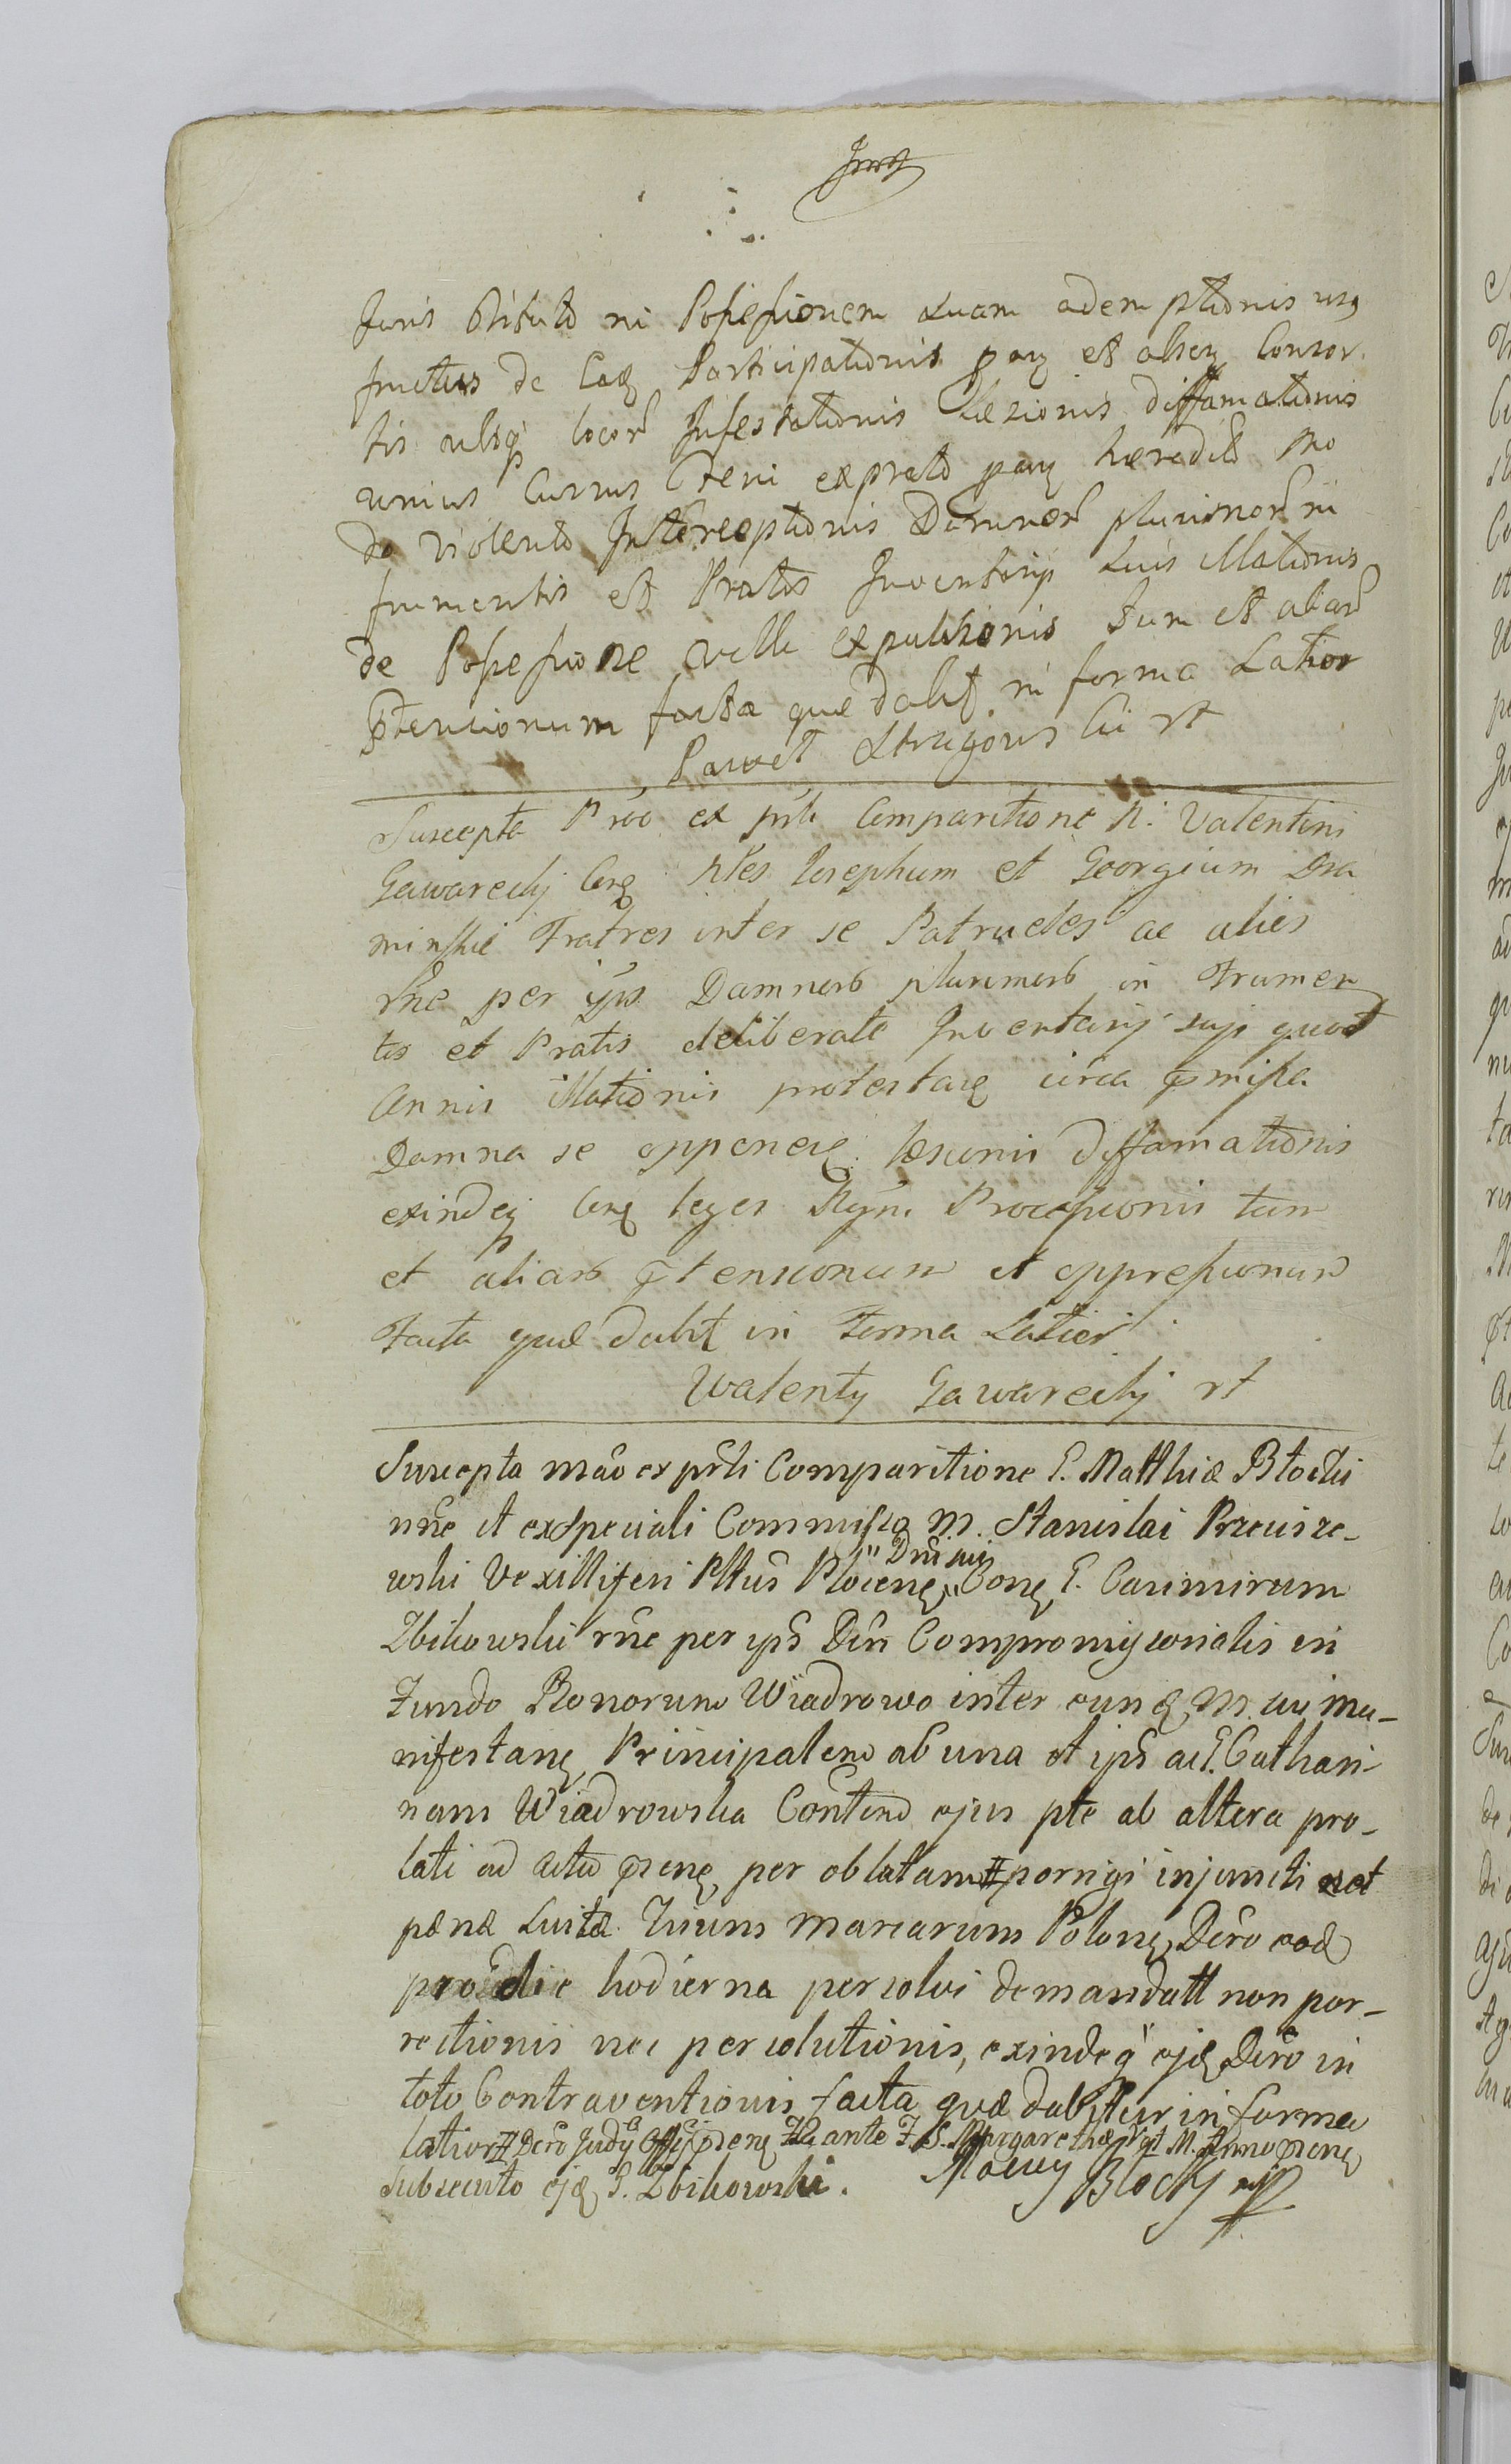 Juris Titulo in Possessionem suam ademptionis usq
fructus de Eaq Participationis paq et alieq Consor
tis ubiq locor Infestationis læsionis diffamationis
unius Currus Feni ex prato paq hæredit mo
do violento Interceptionis Damnor plurimor in
frumentis et Pratis Inventarij suis illationis
de Possessione velle expulsionis tum et aliar
ptensionum facta quæ dabit in forma Latior
Paweł
Suscepta Prõo ex prli Comparitione N. Valentini
Gawarecky Conq Nles Josephum et Georgium Dra
minskie Fratres inter se Patrueles ac alies
rñe per ips Damnorb plurimorb in Frumen
tis et Pratis deliberate Inventarij suji quot
Annis illationis protestarq circa pmissa
Damna se opponerq læsionis diffamationis
exindeq Conq leges Regni Processionis tum
et aliarb ptensionum et oppressionum
Facta quæ dabit in Forma Latiori
Walenty Gawarecky rt
Suscepta mãõ ex prli Comparitione G. Matthiæ Błocki
nñe et ex speciali Commisso M. Stanislai Przeuisze-
wski Vexilliferi Pltus Plocenq "Dni sui" Conq G. Casimirum
Zbikowski rñe per ips Dcri Compromissorialis in
Fundo Bonorum Wiadrowo inter eunq M. uti ma-
nifestanq Principalem ab una et ips ac G. Cathari-
nam Wiadrowska Contem ejus pte ab altera pro-
lati ad acta psenq per oblatam # porrigi injuncti et
pænæ Luitæ Trium marcarum Polonq Dcro eod
pro die hodierna persolvi demandatt non por-
rectionis nec persolutionis, exindeq ejq Dcro in
toto Contraventionis facta quæ dabitur in forma
latiori # Dcro Judij Officij psenq Fa ante F. S. Margarethæ Vgt M. Anno psenq
subsecuto ejq G. Zbikowski. Maciey Błocky mp